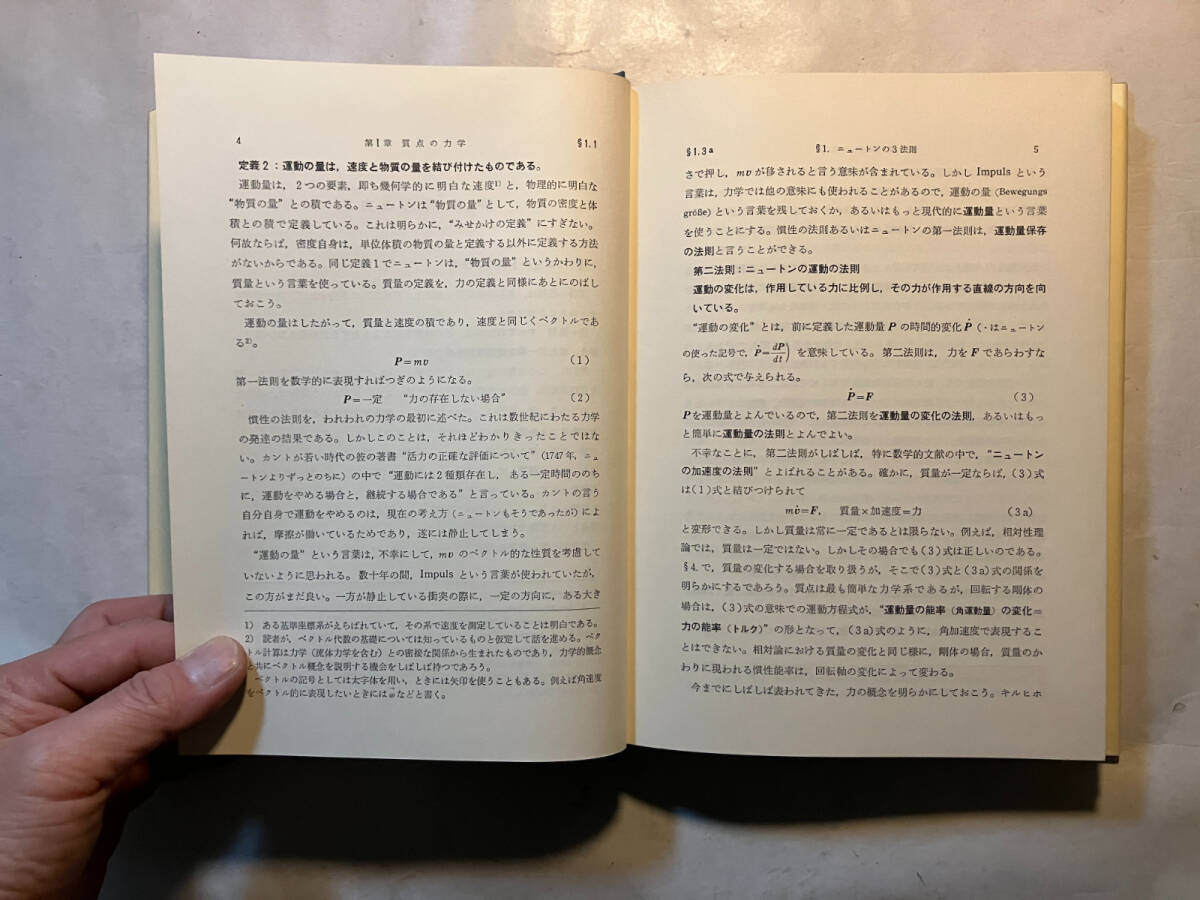 4 第1章 質点の力学 §1.1
定義2：運動の量は，速度と物質の量を結び付けたものである。
運動量は，2つの要素，即ち幾何学的に明白な速度1)と，物理的に明白な
“物質の量”との積である。ニュートンは“物質の量”として，物質の密度と体
積との積で定義している。これは明らかに，“みせかけの定義”にすぎない。
何故ならば，密度自身は，単位体積の物質の量と定義する以外に定義する方法
がないからである。同じ定義1でニュートンは，“物質の量”というかわりに，
質量という言葉を使っている。質量の定義を，力の定義と同様にあとにのばし
ておこう。
運動の量はしたがって，質量と速度の積であり，速度と同じくベクトルであ
る2)。
P=mv (1)
第一法則を数学的に表現すればつぎのようになる。
P=一定 “力の存在しない場合” (2)
慣性の法則を，われわれの力学の最初に述べた。これは数世紀にわたる力学
の発達の結果である。しかしこのことは，それほどわかりきったことではな
い。カントが若い時代の彼の著書“活力の正確な評価について”(1747年，ニュ
ートンよりずっとのちに)の中で“運動には2種類存在し，ある一定時間ののち
に，運動をやめる場合と，継続する場合である”と言っている。カントの言う
自分自身で運動をやめるのは，現在の考え方(ニュートンもそうであったが)によ
れば，摩擦が働いているためであり，遂には静止してしまう。
“運動の量”という言葉は，不幸にして，mvのベクトル的な性質を考慮して
いないように思われる。数十年の間，Impulsという言葉が使われていたが，
この方がまだ良い。一方が静止している衝突の際に，一定の方向に，ある大き
1) ある基準座標系がえらばれていて，その系で速度を測定していることは明白である。
2) 読者が，ベクトル代数の基礎については知っているものと仮定して話を進める。ベク
トル計算は力学(流体力学を含む)との密接な関係から生まれたものであり，力学的概念
と共にベクトル概念を説明する機会をしばしば持つであろう。
ベクトルの記号としては太字体を用い，ときには矢印を使うこともある。例えば角速度
をベクトル的に表現したいときにはωなどと書く。
§1.3a §1. ニュートンの3法則 5
さで押し，mvが移されると言う意味が含まれている。しかしImpulsという
言葉は，力学では他の意味にも使われることがあるので，運動の量(Bewegungs
größe)という言葉を残しておくか，あるいはもっと現代的に運動量という言葉
を使うことにする。慣性の法則あるいはニュートンの第一法則は，運動量保存
の法則と言うことができる。
第二法則：ニュートンの運動の法則
運動の変化は，作用している力に比例し，その力が作用する直線の方向を向
いている。
“運動の変化”とは，前に定義した運動量Pの時間的変化Ṗ(・はニュートン
の使った記号で，Ṗ=dP/dt)を意味している。第二法則は，力をFであらわすな
ら，次の式で与えられる。
Ṗ=F (3)
Pを運動量とよんでいるので，第二法則を運動量の変化の法則，あるいはもっ
と簡単に運動量の法則とよんでよい。
不幸なことに，第二法則がしばしば，特に数学的文献の中で，“ニュートン
の加速度の法則”とよばれることがある。確かに，質量が一定ならば，(3)式
は(1)式と結びつけられて
mv̇=F, 質量×加速度=力 (3a)
と変形できる。しかし質量は常に一定であるとは限らない。例えば，相対性理
論では，質量は一定ではない。しかしその場合でも(3)式は正しいのである。
§4.で，質量の変化する場合を取り扱うが，そこで(3)式と(3a)式の関係を
明らかにするであろう。質点は最も簡単な力学系であるが，回転する剛体の
場合は，(3)式の意味での運動方程式が，“運動量の能率(角運動量)の変化＝
力の能率(トルク)”の形となって，(3a)式のように，角加速度で表現するこ
とはできない。相対論における質量の変化と同じ様に，剛体の場合，質量のか
わりに現われる慣性能率は，回転軸の変化によって変わる。
今までにしばしば表われてきた，力の概念を明らかにしておこう。キルヒホ